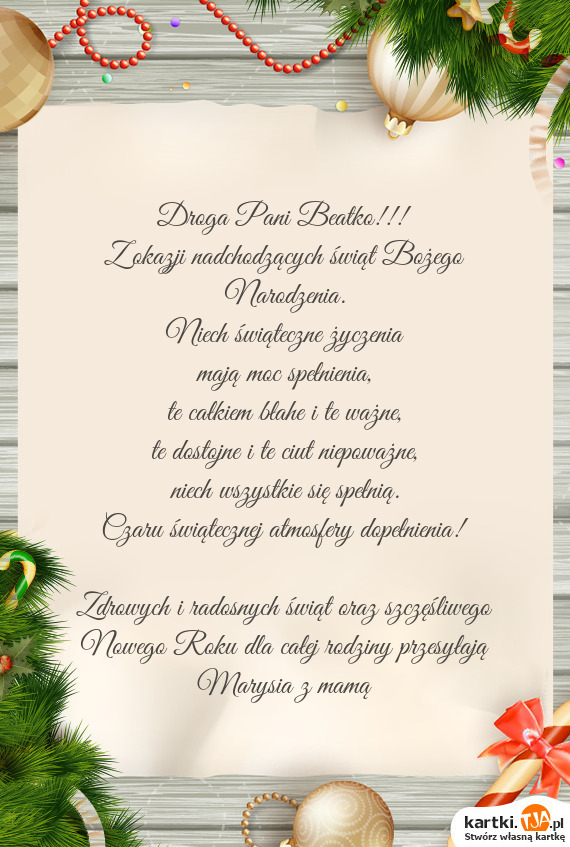 Droga Pani Beatko!!!
Zokazji nadchodzących świąt Bożego
Narodzenia.
Niech świąteczne życzenia
mają moc spełnienia,
te całkiem błahe i te ważne,
te dostojne i te ciut niepoważne,
niech wszystkie się spełnią.
Czaru świątecznej atmosfery dopełnienia!
Zdrowych i radosnych świąt oraz szczęśliwego
Nowego Roku dla całej rodziny przesyłają
Marysia z mamą
kartki.TJA.pl
Stwórz własną kartkę